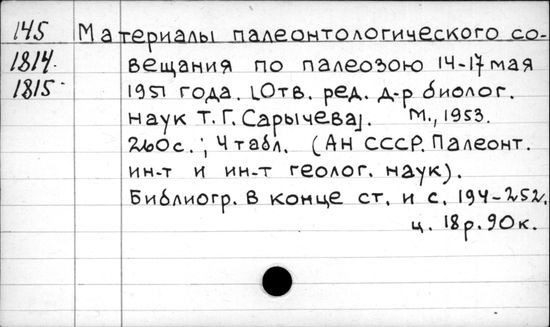 145 Материалы палеонтологического со-
1814. вещания по палеозою 14-17 мая
1815 1951 года. [Отв. ред. д-р биолог.
наук Т.Г. Сарычева]. М., 1953.
260 с.; 4 табл. (АН СССР. Палеонт.
ин-т и ин-т геолог. наук).
Библиогр. в конце ст. и с. 194-252.
ц. 18 р. 90 к.